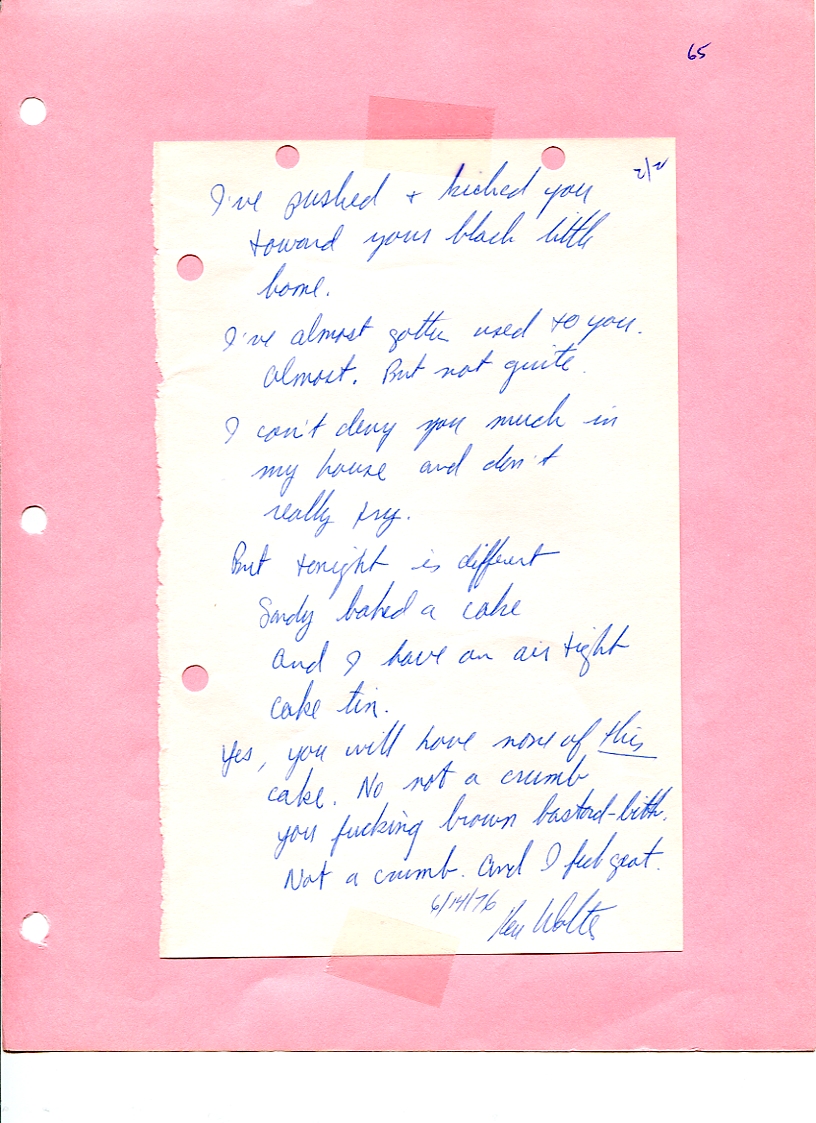 65
2/2
I've pushed + kicked you
toward your black little
home.
I've almost gotten used to you.
almost. But not quite.
I can't deny you much in
my house and don't
really try.
But tonight is different
Sandy baked a cake
and I have an air tight
cake tin.
Yes, you will have none of this
cake. No not a crumb
you fucking brown bastard-bitch.
Not a crumb. And I feel great.
6/14/76
Ken Wolte